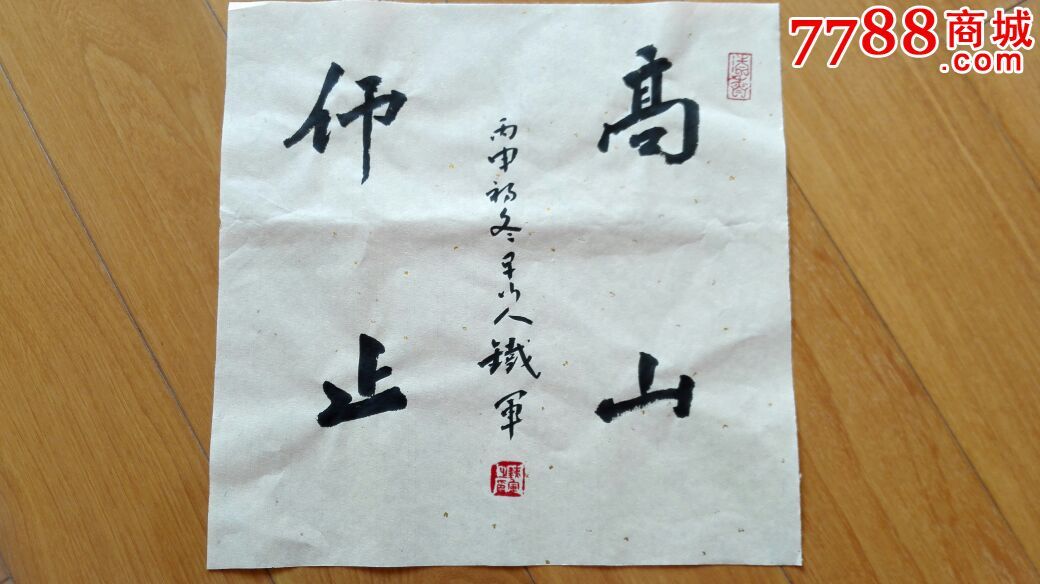 高山
仰止
丙申初冬山人鐵軍
鐵軍之印
7788商城
.com